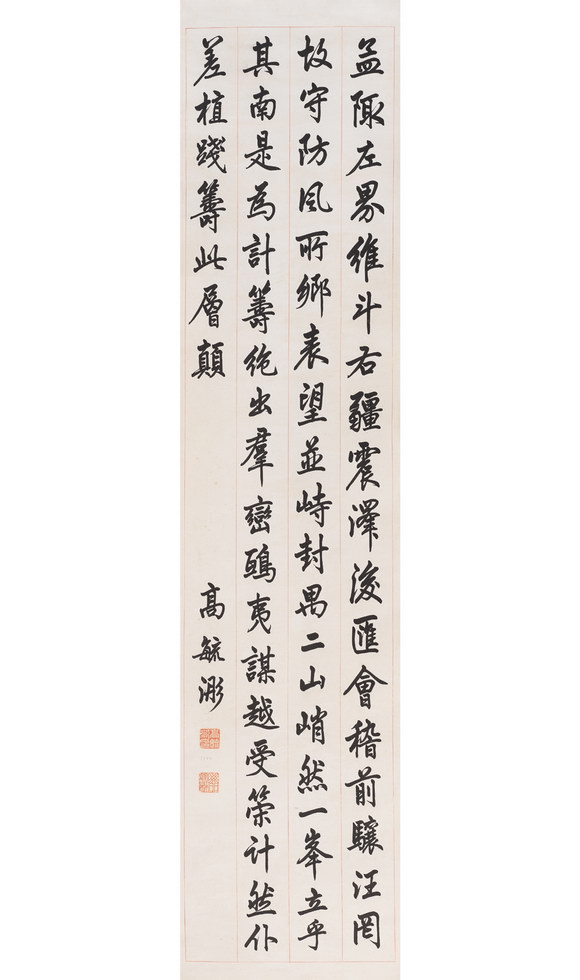 孟陬左界維斗右疆震澤後匯會稽前驤汪罔
故守防風所鄉表望並峙封禺二山峭然一峯立乎
其南是為計籌絶出羣巒鴟夷謀越受策計然仆
差植踐籌此層顛
高毓浵